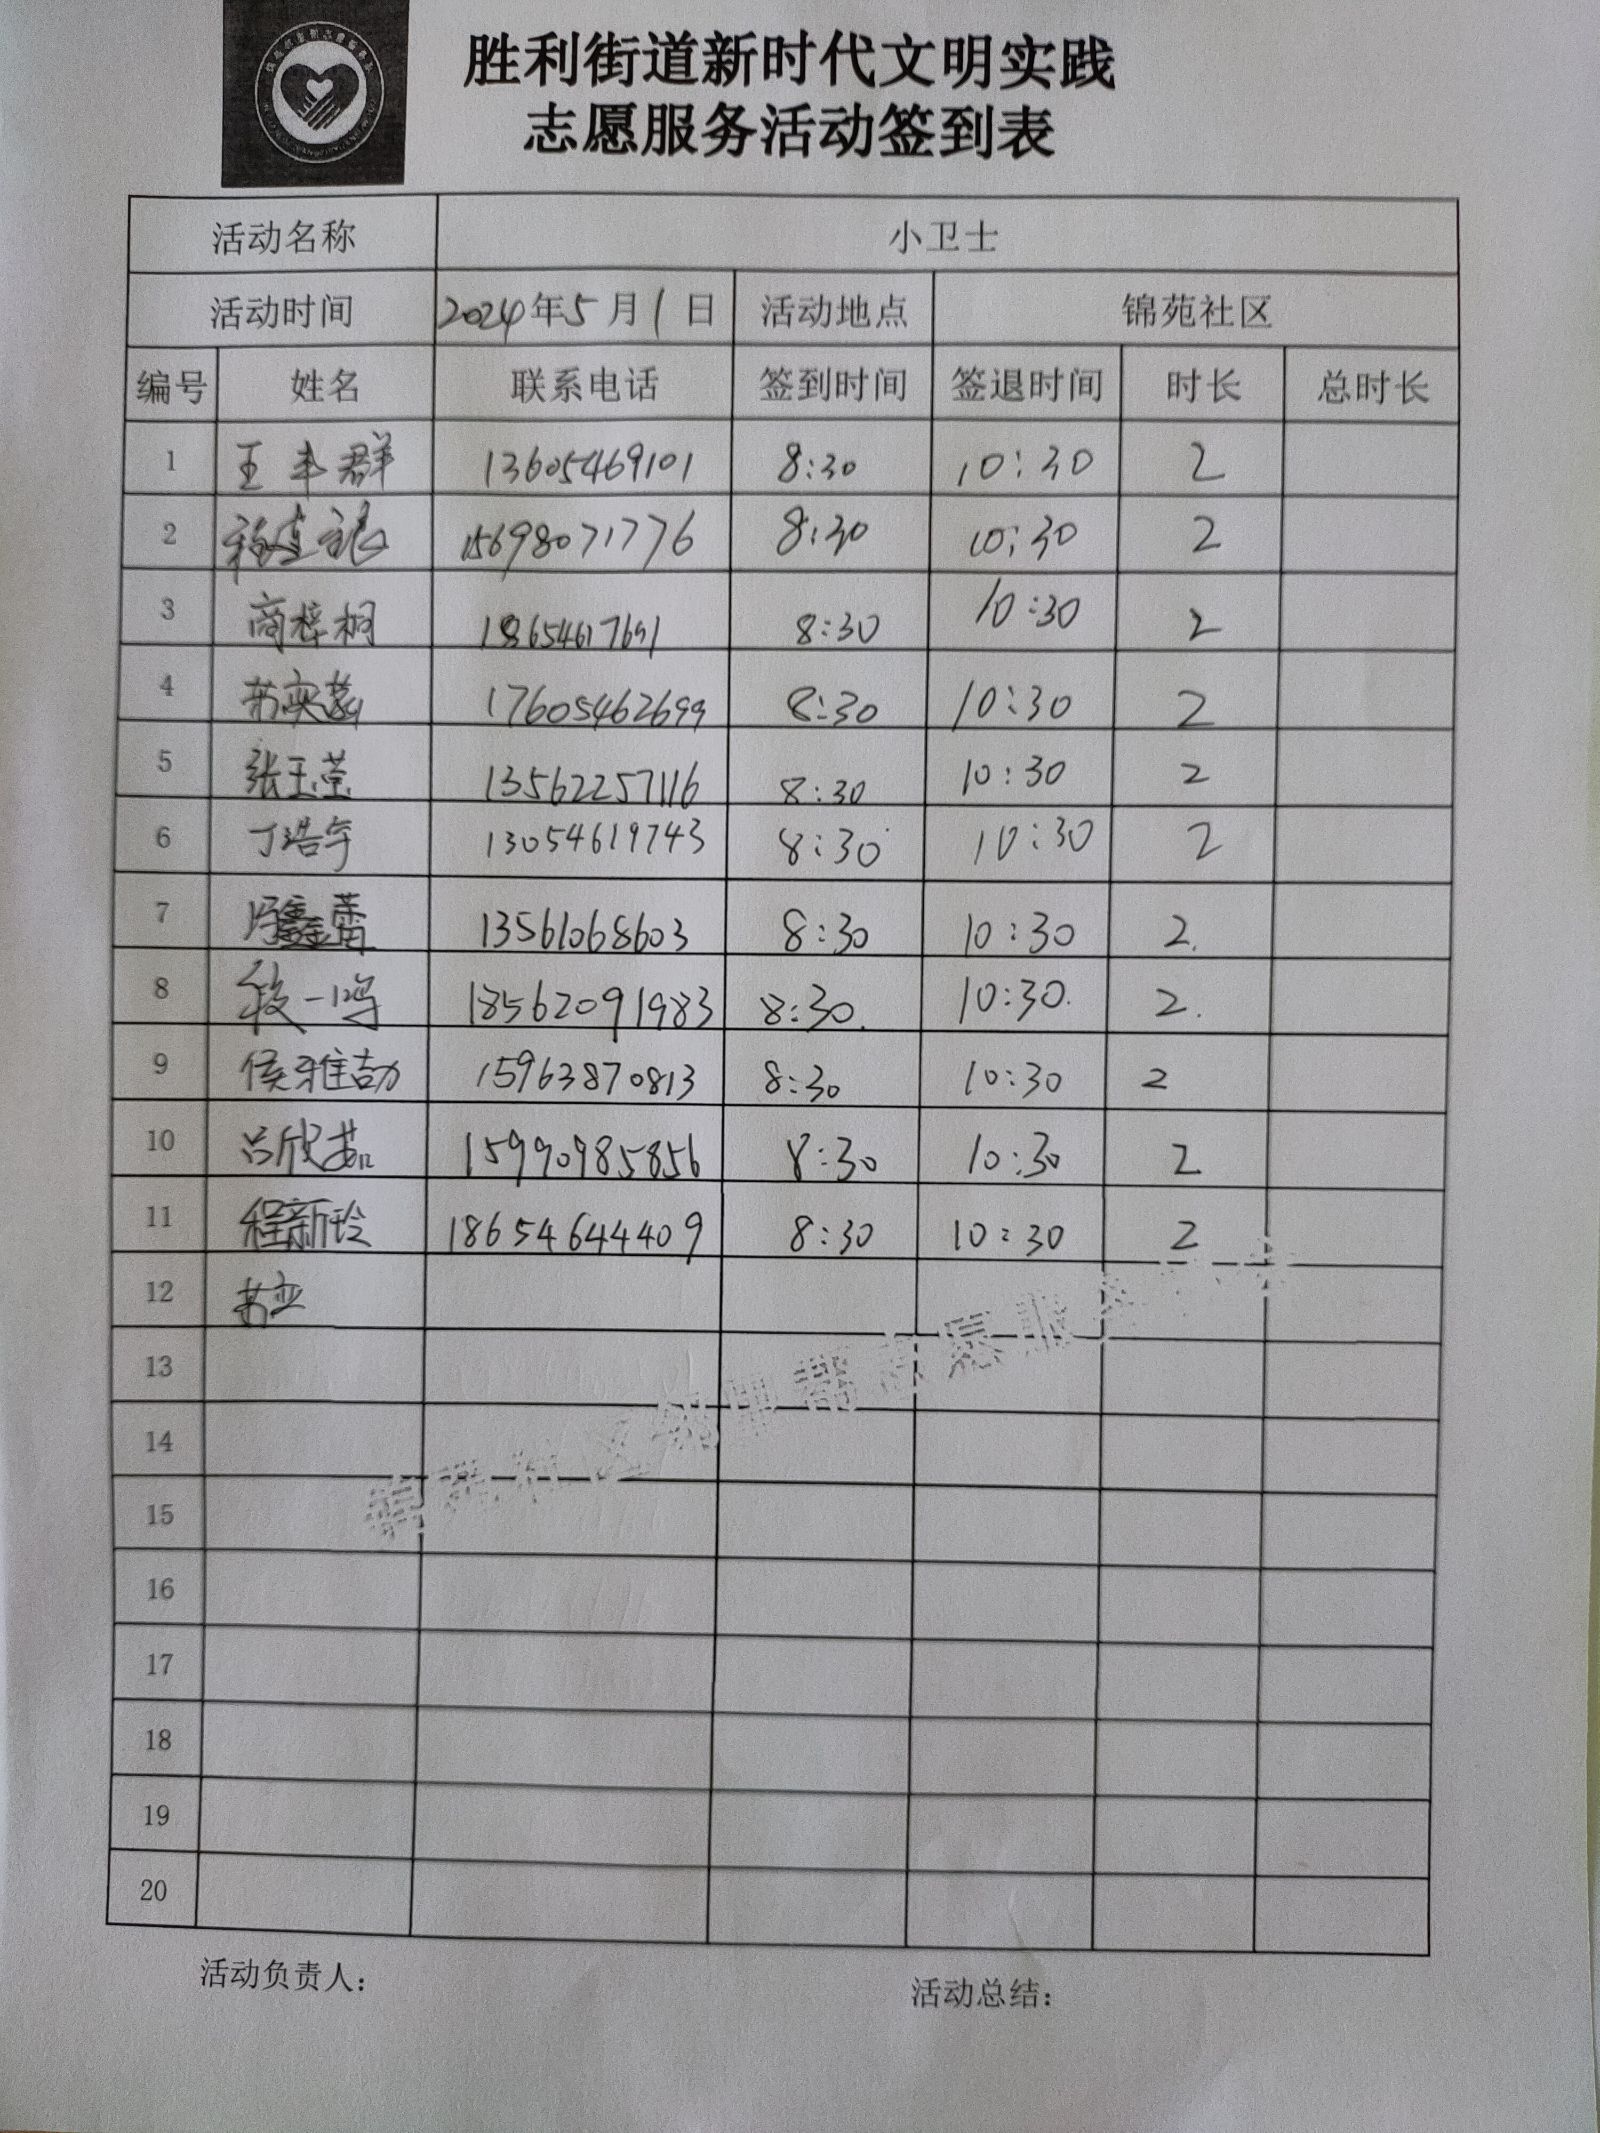 胜利街道新时代文明实践
志愿服务活动签到表
活动名称 小卫士
活动时间 2024年5月1日 活动地点 锦苑社区
编号 姓名 联系电话 签到时间 签退时间 时长 总时长
1 王丰群 13605469101 8:30 10:30 2
2 15698071776 8:30 10:30 2
3 商梓桐 18654617691 8:30 10:30 2
4 苏奕 17605462699 8:30 10:30 2
5 张玉莹 13562257116 8:30 10:30 2
6 丁浩宇 13054619743 8:30 10:30 2
7 鑫蕾 13561068603 8:30 10:30 2.
8 一鸣 18562091983 8:30. 10:30. 2.
9 侯雅劼 15963870813 8:30 10:30 2
10 吕欣茹 15990985856 8:30 10:30 2
11 程新玲 18654644409 8:30 10:30 2
12 苏亚
13
14
15
16
17
18
19
20
活动负责人： 活动总结：